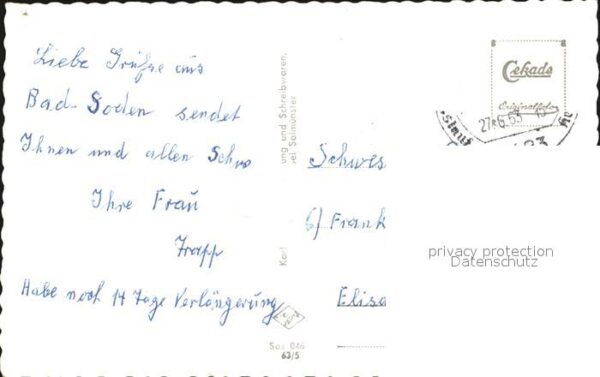 Liebe Grüße aus
Bad-Soden sendet
Ihnen und allen Schw
Ihre Frau
Trapp
Habe noch 14 Tage Verlängerung
ung und Schreibwaren,
bei Salmünster
Karl
Sos 046
63/5
Cekade
Originalfoto
27.6.63
Schwes
6) Frank
Elisa
privacy protection
Datenschutz